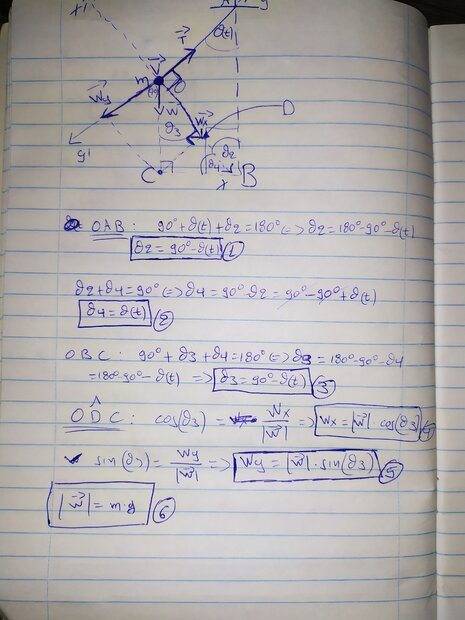 x'
A
y
ϑ(t)
T⃗
m
W⃗y
W
W⃗x
D
ϑ3
ϑ2
ϑ4
y'
C
x
B
OAB: 90°+ϑ(t)+ϑ2=180° <=> ϑ2=180°-90°-ϑ(t)
ϑ2=90°-ϑ(t) ①
ϑ2+ϑ4=90° <=> ϑ4=90°-ϑ2=90°-90°+ϑ(t)
ϑ4=ϑ(t) ②
OBC: 90°+ϑ3+ϑ4=180° <=> ϑ3=180°-90°-ϑ4
=180°-90°-ϑ(t) => ϑ3=90°-ϑ(t) ③
OD̂C: cos(ϑ3) = Wx/|W⃗| => Wx=|W⃗|·cos(ϑ3) ④
sin(ϑ3)= Wy/|W⃗| => Wy=|W⃗|·sin(ϑ3) ⑤
|W⃗|=m·g ⑥